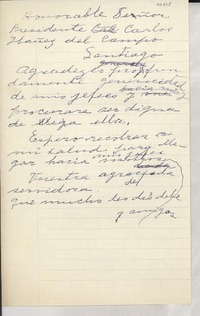 Honorable Señor
Presidente Carlos
Ibáñez del Campo
Santiago
Agradezco profun
damente generosidad
de mis jefes y
procurare ser digna
de ella.
Espero recobrar
mi salud para lle
gar hacia
Vuestra agradecida
servidora
que mucho les debe
y amigos